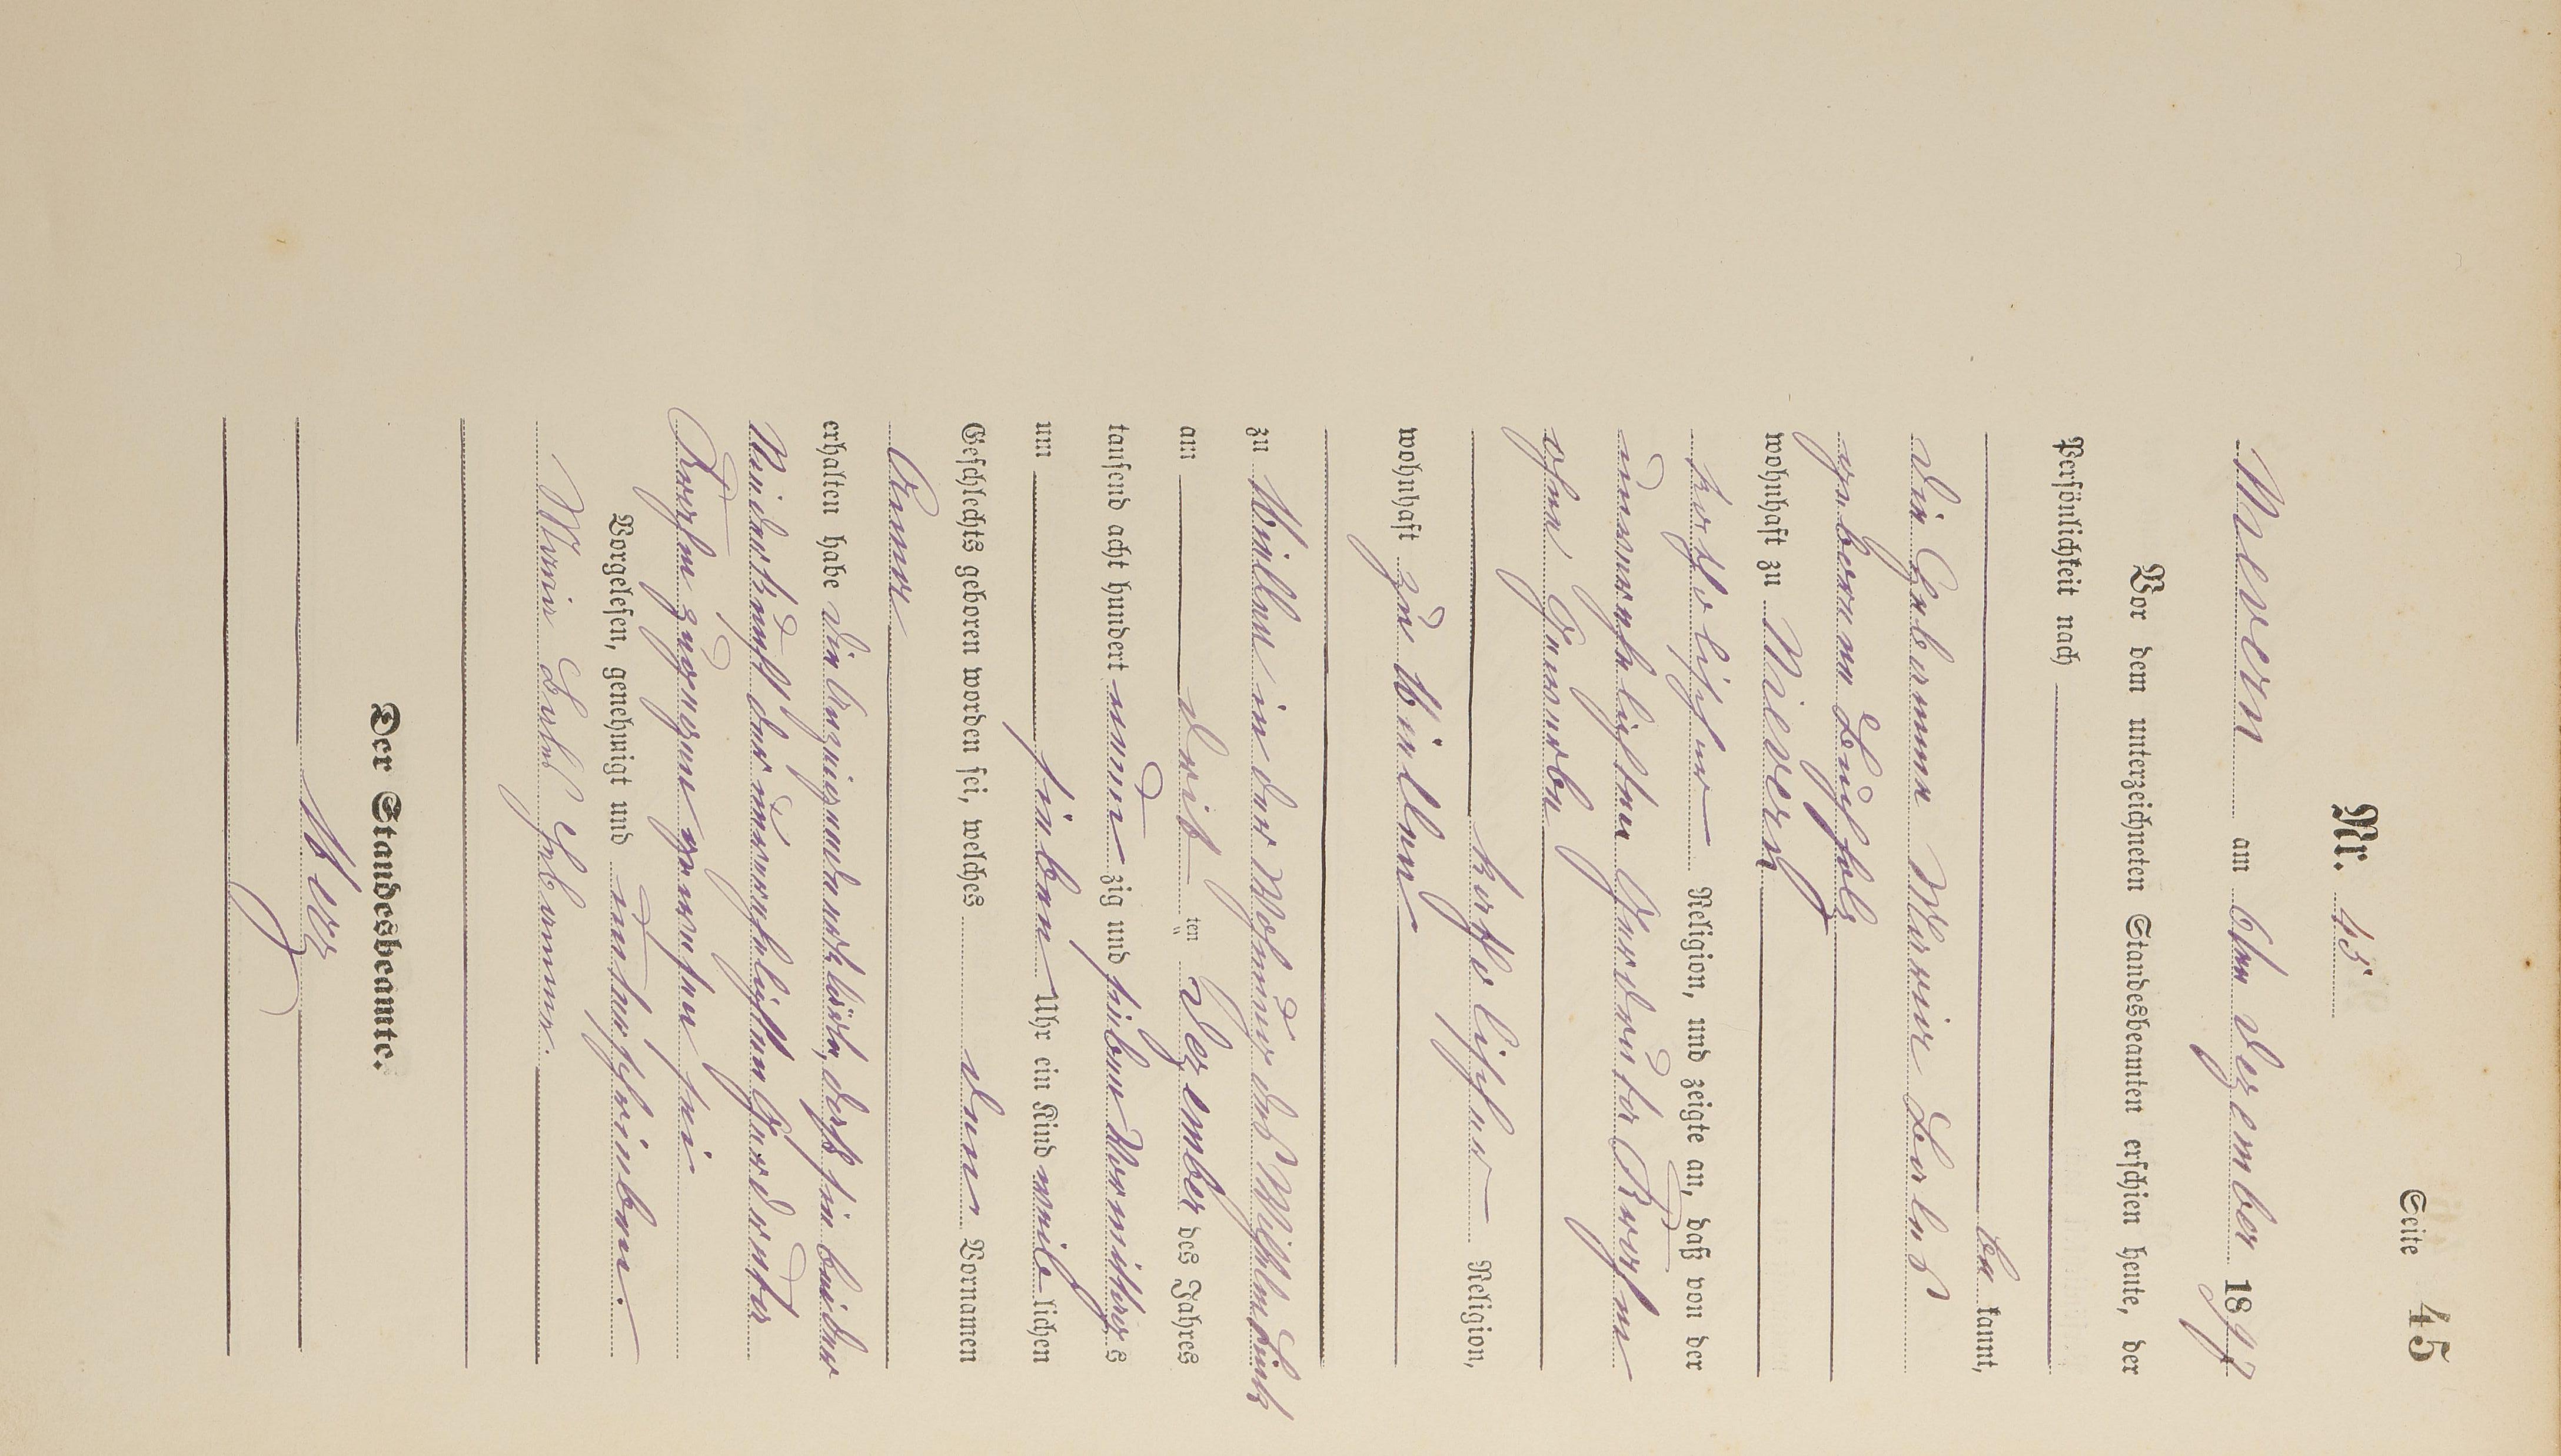 Seite 45
Nr. 45
Nievern am 6ten Dezember 1897
Vor dem unterzeichneten Standesbeamten erschien heute, der
Persönlichkeit nach
be kannt,
die Hebamme Maria Labas
geborene
wohnhaft zu Nievern
katholischer Religion, und zeigte an, daß von der
unverehelichten Gertruda
ohne Gewerbe
katholischer Religion,
wohnhaft zu Miellen
zu Miellen in der Wohnung des Wilhelm Link
am drit ten Dezember des Jahres
tausend acht hundert neun zig und sieben Vormittags
um sieben Uhr ein Kind weib lichen
Geschlechts geboren worden sei, welches den Vornamen
Anna
erhalten habe die Anzeigende erklärt, daß sie bei der
Niederkunft der unverehelichten Gertruda
zugegen gewesen sei
Vorgelesen, genehmigt und unterschrieben.
Maria Labas Hebamme.
Der Standesbeamte.